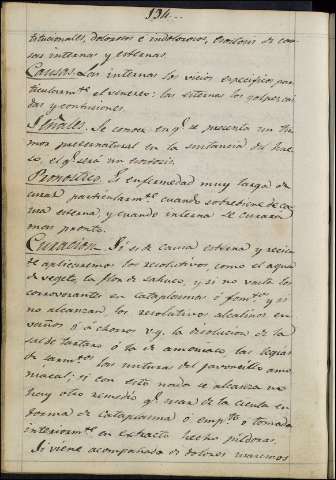 134..
titucionales, dolorosos e indolorosos, exostosis de cau-
sas internas y externas.
Causas. Las internas los vicios especificos par-
ticularm.te el venereo: las externas los golpes cai
das y contusiones.
Señales. Se conoce en q.e se presenta un tu-
mor preternatural en la sustancia del hue-
so, el q.e será un exostosis.
Pronostico. Es enfermedad muy larga de
curar particularm.te cuando sobreviene de ca
usa externa, y cuando interna se curará
mas pronto.
Curación. Si es de causa externa y recien
te aplicaremos los resolutivos, como el agua
de vegeto, la flor de sahuco, y, si no basta los
corrovorantes en cataplasmas ó fom.tos, y si
no alcanzan, los resolutivos alcalinos en
vaños ó á chorros v.g. la disolucion de la
sal de tartaro ó la de amoniaco, las legias
de sarm.tos las unturas del javoncillo amo
niacal; si con esto nada se alcanza no
hay otro remedio q.e usar de la cicuta en
forma de cataplasma ó emp.to ó tomada
interiorm.te en extracto hecho pildoras.
Si viene acompañada de dolores usaremos